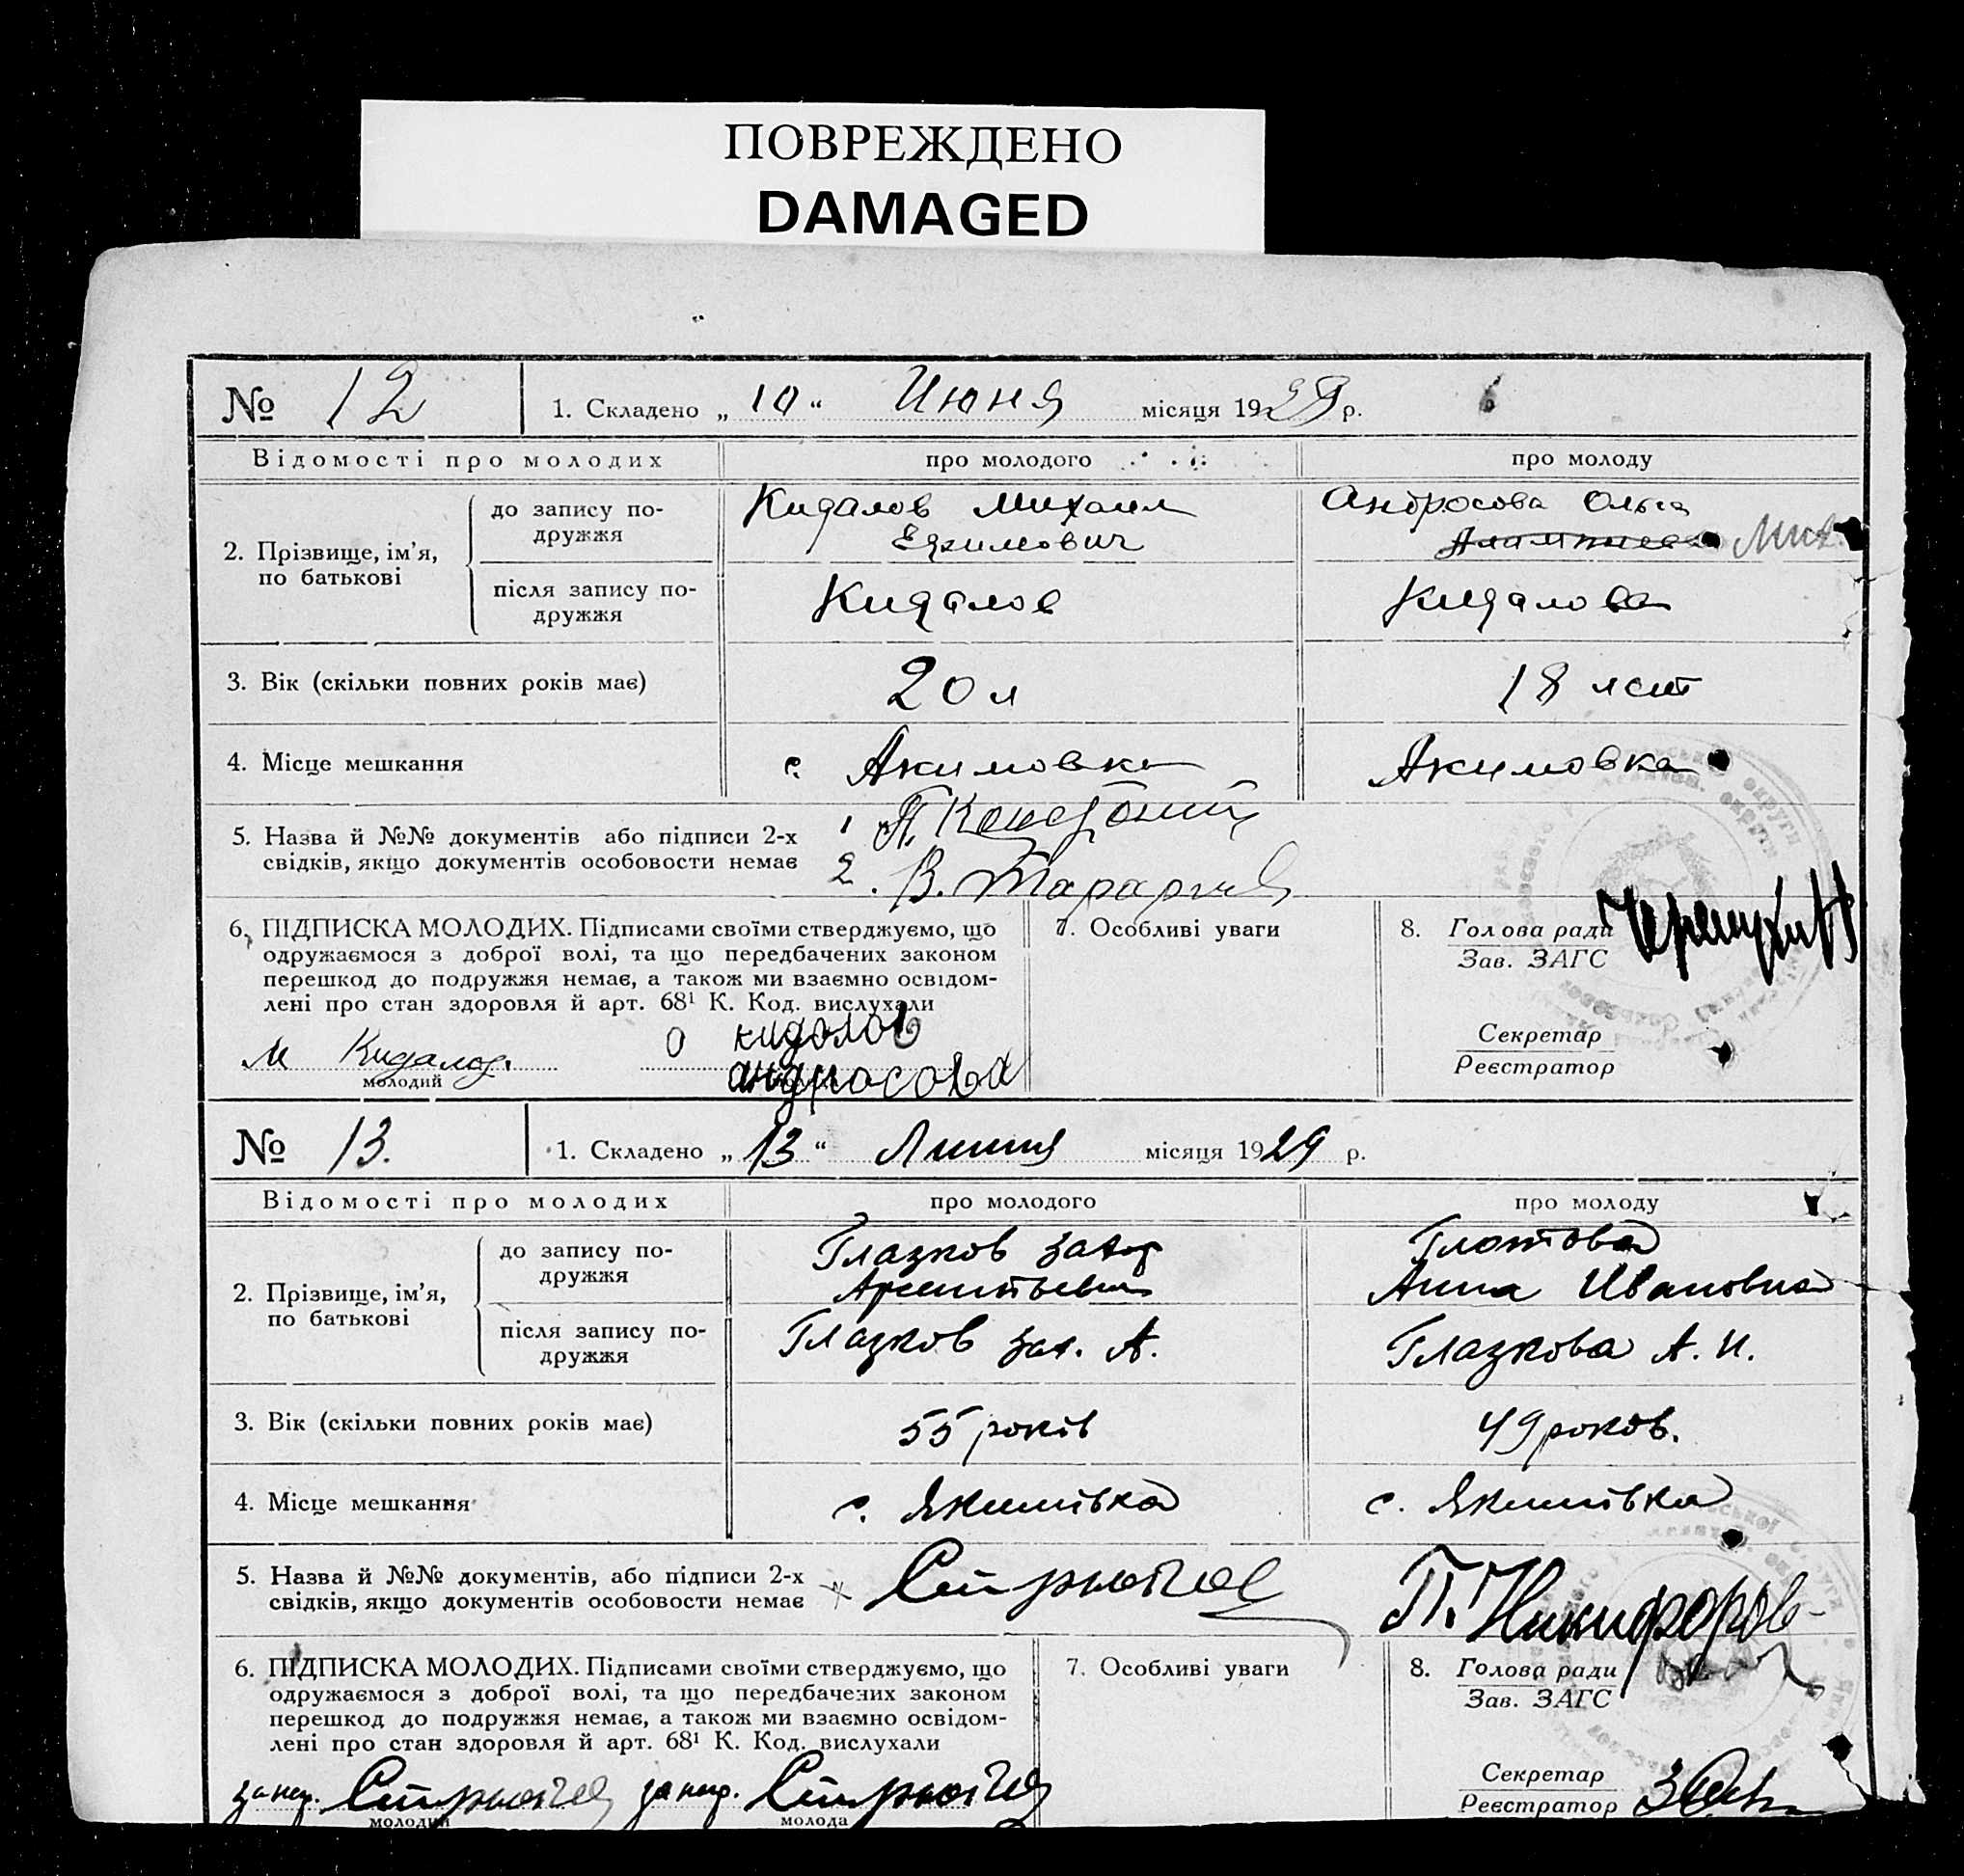 ПОВРЕЖДЕНО
DAMAGED
№ 12
1. Складено „ 10 “ Июня місяця 1929 р.
Відомості про молодих
про молодого
про молоду
2. Прізвище, ім’я, по батькові
до запису подружжя
Кидалов Михаил
Ефимович
Андросова Ольга
Мих.
після запису подружжя
Кидалов
Кидалова
3. Вік (скільки повних років має)
20 л
18 лет
4. Місце мешкання
с. Акимовка
Акимовка
5. Назва й №№ документів або підписи 2-х
свідків, якщо документів особовости немає
1 П.
2. В.
6. ПІДПИСКА МОЛОДИХ. Підписами своїми стверджуємо, що
одружаємося з доброї волі, та що передбачених законом
перешкод до подружжя немає, а також ми взаємно освідом-
лені про стан здоровля й арт. 68¹ К. Код. вислухали
М Кидалов.
молодий
О кидалов
андросова
7. Особливі уваги
8. Голова ради
Зав. ЗАГС
Секретар
Реєстратор
№ 13.
1. Складено „ 13 “ Липня місяця 1929 р.
Відомості про молодих
про молодого
про молоду
2. Прізвище, ім’я, по батькові
до запису подружжя
Глазков
Глотова
Анна Ивановна
після запису подружжя
Глазков Зах. А.
Глазкова А. И.
3. Вік (скільки повних років має)
55 років
49 років.
4. Місце мешкання
с. Якимівка
с. Якимівка
5. Назва й №№ документів, або підписи 2-х
свідків, якщо документів особовости немає
П. Никифоров
6. ПІДПИСКА МОЛОДИХ. Підписами своїми стверджуємо, що
одружаємося з доброї волі, та що передбачених законом
перешкод до подружжя немає, а також ми взаємно освідом-
лені про стан здоровля й арт. 68¹ К. Код. вислухали
за нег.
за нег.
молодий
молода
7. Особливі уваги
8. Голова ради
Зав. ЗАГС
Секретар
Реєстратор